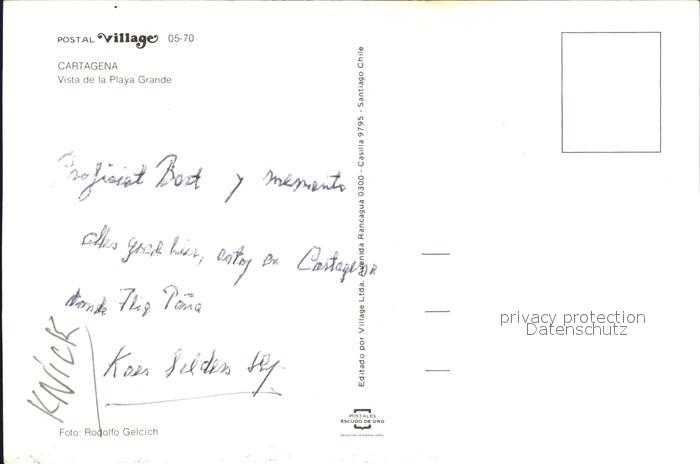 POSTAL Village 05-70
CARTAGENA
Vista de la Playa Grande
Proficiat Bart y memento
alles goed hier, estoy en Cartagena
donde
Koen
KNICK
Foto: Rodolfo Gelcich
Editado por Village Ltda. Avenida Rancagua 0300 - Casilla 9795 - Santiago Chile
POSTALES
ESCUDO DE ORO
privacy protection
Datenschutz